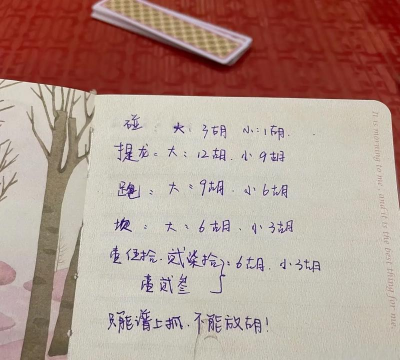 碰 大:3胡 小:1胡.
提龙: 大:12胡. 小9胡
跑: 大:9胡. 小6胡
坎: 大:6胡. 小3胡
壹伍拾. 贰柒拾}:6胡. 小3胡
壹贰叁
只能谱上抓. 不能放胡!
It is morning to me, and it is the best thing for me.